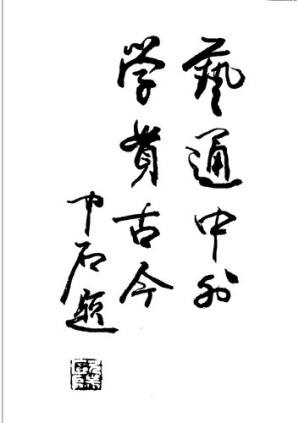 藝通中外
学贯古今
中石题